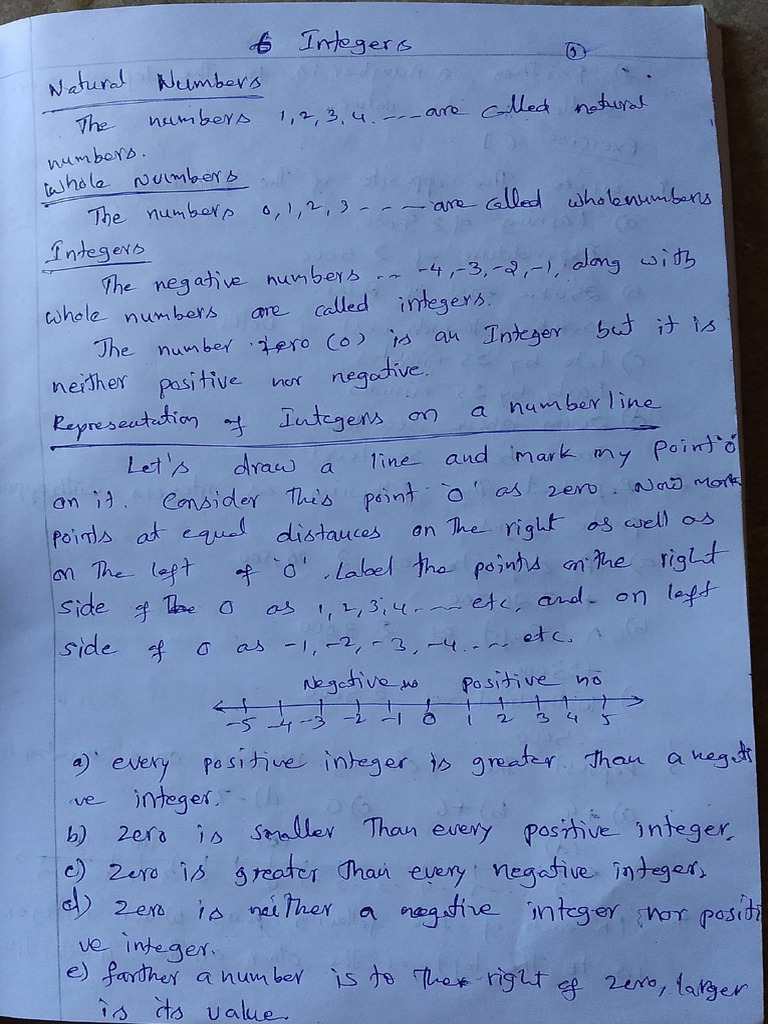 6 Integers ①
Natural Numbers
The numbers 1, 2, 3, 4 ---- are called natural
numbers.
Whole Numbers
The numbers 0, 1, 2, 3 ---- are called wholenumbers
Integers
The negative numbers .. -4, -3, -2, -1, along with
whole numbers are called integers.
The number zero (0) is an Integer but it is
neither positive nor negative.
Representation of Integers on a number line
Let's draw a line and mark my point 'o'
on it. Consider this point 'O' as zero. Now mark
points at equal distances on the right as well as
on the left of 'O'. Label the points on the right
side of the 0 as 1, 2, 3, 4 ---- etc, and on left
side of 0 as -1, -2, -3, -4 .... etc.
Negative no positive no
-5 -4 -3 -2 -1 0 1 2 3 4 5
a) every positive integer is greater than a negati
ve integer.
b) zero is smaller than every positive integer.
c) zero is greater than every negative integer.
d) zero is neither a negative integer nor positi
ve integer.
e) farther a number is to the right of zero, larger
is its value.